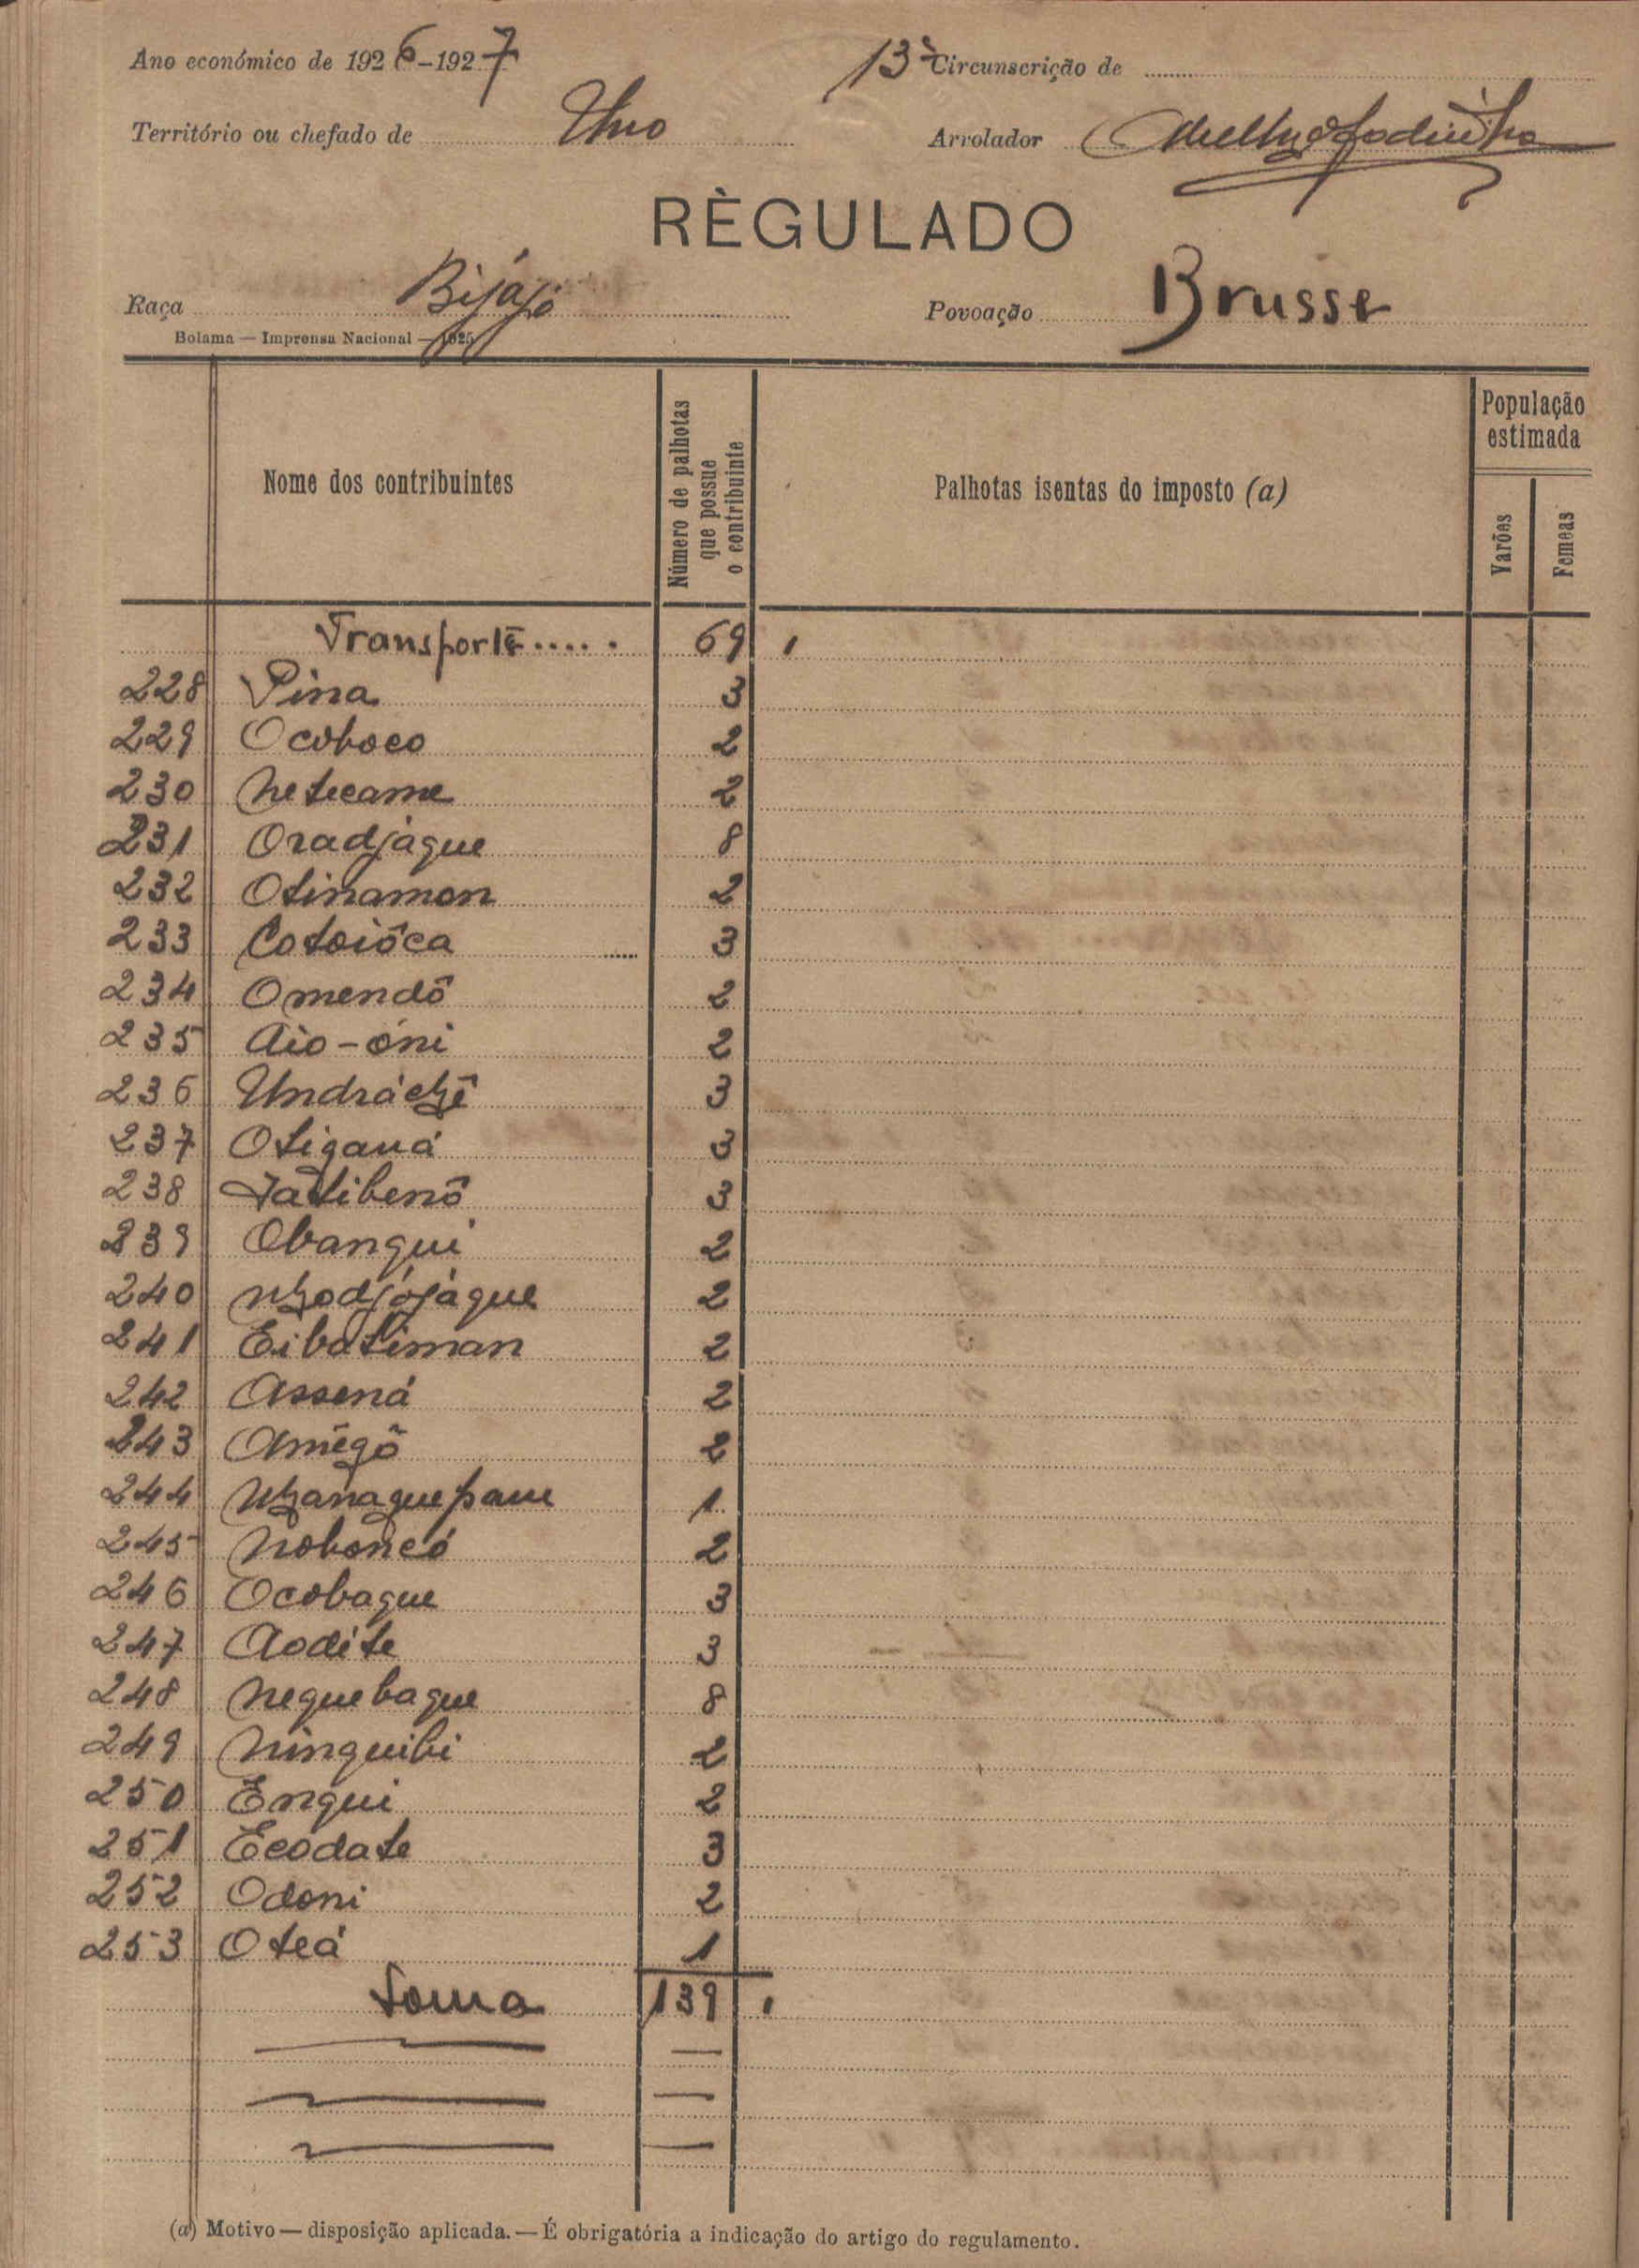 Ano económico de 1926-1927
13ª Circunscrição de
Território ou chefado de Uno
Arrolador
RÈGULADO
Raça Bijájó
Povoação Brusse
Bolama — Imprensa Nacional — 1925
Nome dos contribuintes
Número de palhotas que possue o contribuinte
Palhotas isentas do imposto (a)
População estimada
Varões
Femeas
Transporte..... 69
228 Pina 3
229 Ocoboco 2
230 Netecame 2
231 Oradjàque 8
232 Otinamon 2
233 Cotoiôca 3
234 Omendô 2
235 Aìo-óni 2
236 3
237 Otiganá 3
238 Tatibenô 3
239 Obangui 2
240 2
241 Eibatiman 2
242 Assená 2
243 Amégô 2
244 1
245 Noboncó 2
246 Ocobaque 3
247 Aodite 3
248 Nequebaque 8
249 Ninguibi 2
250 Engui 2
251 Ecodate 3
252 Odoni 2
253 Oteá 1
Soma 139
(a) Motivo — disposição aplicada. — É obrigatória a indicação do artigo do regulamento.